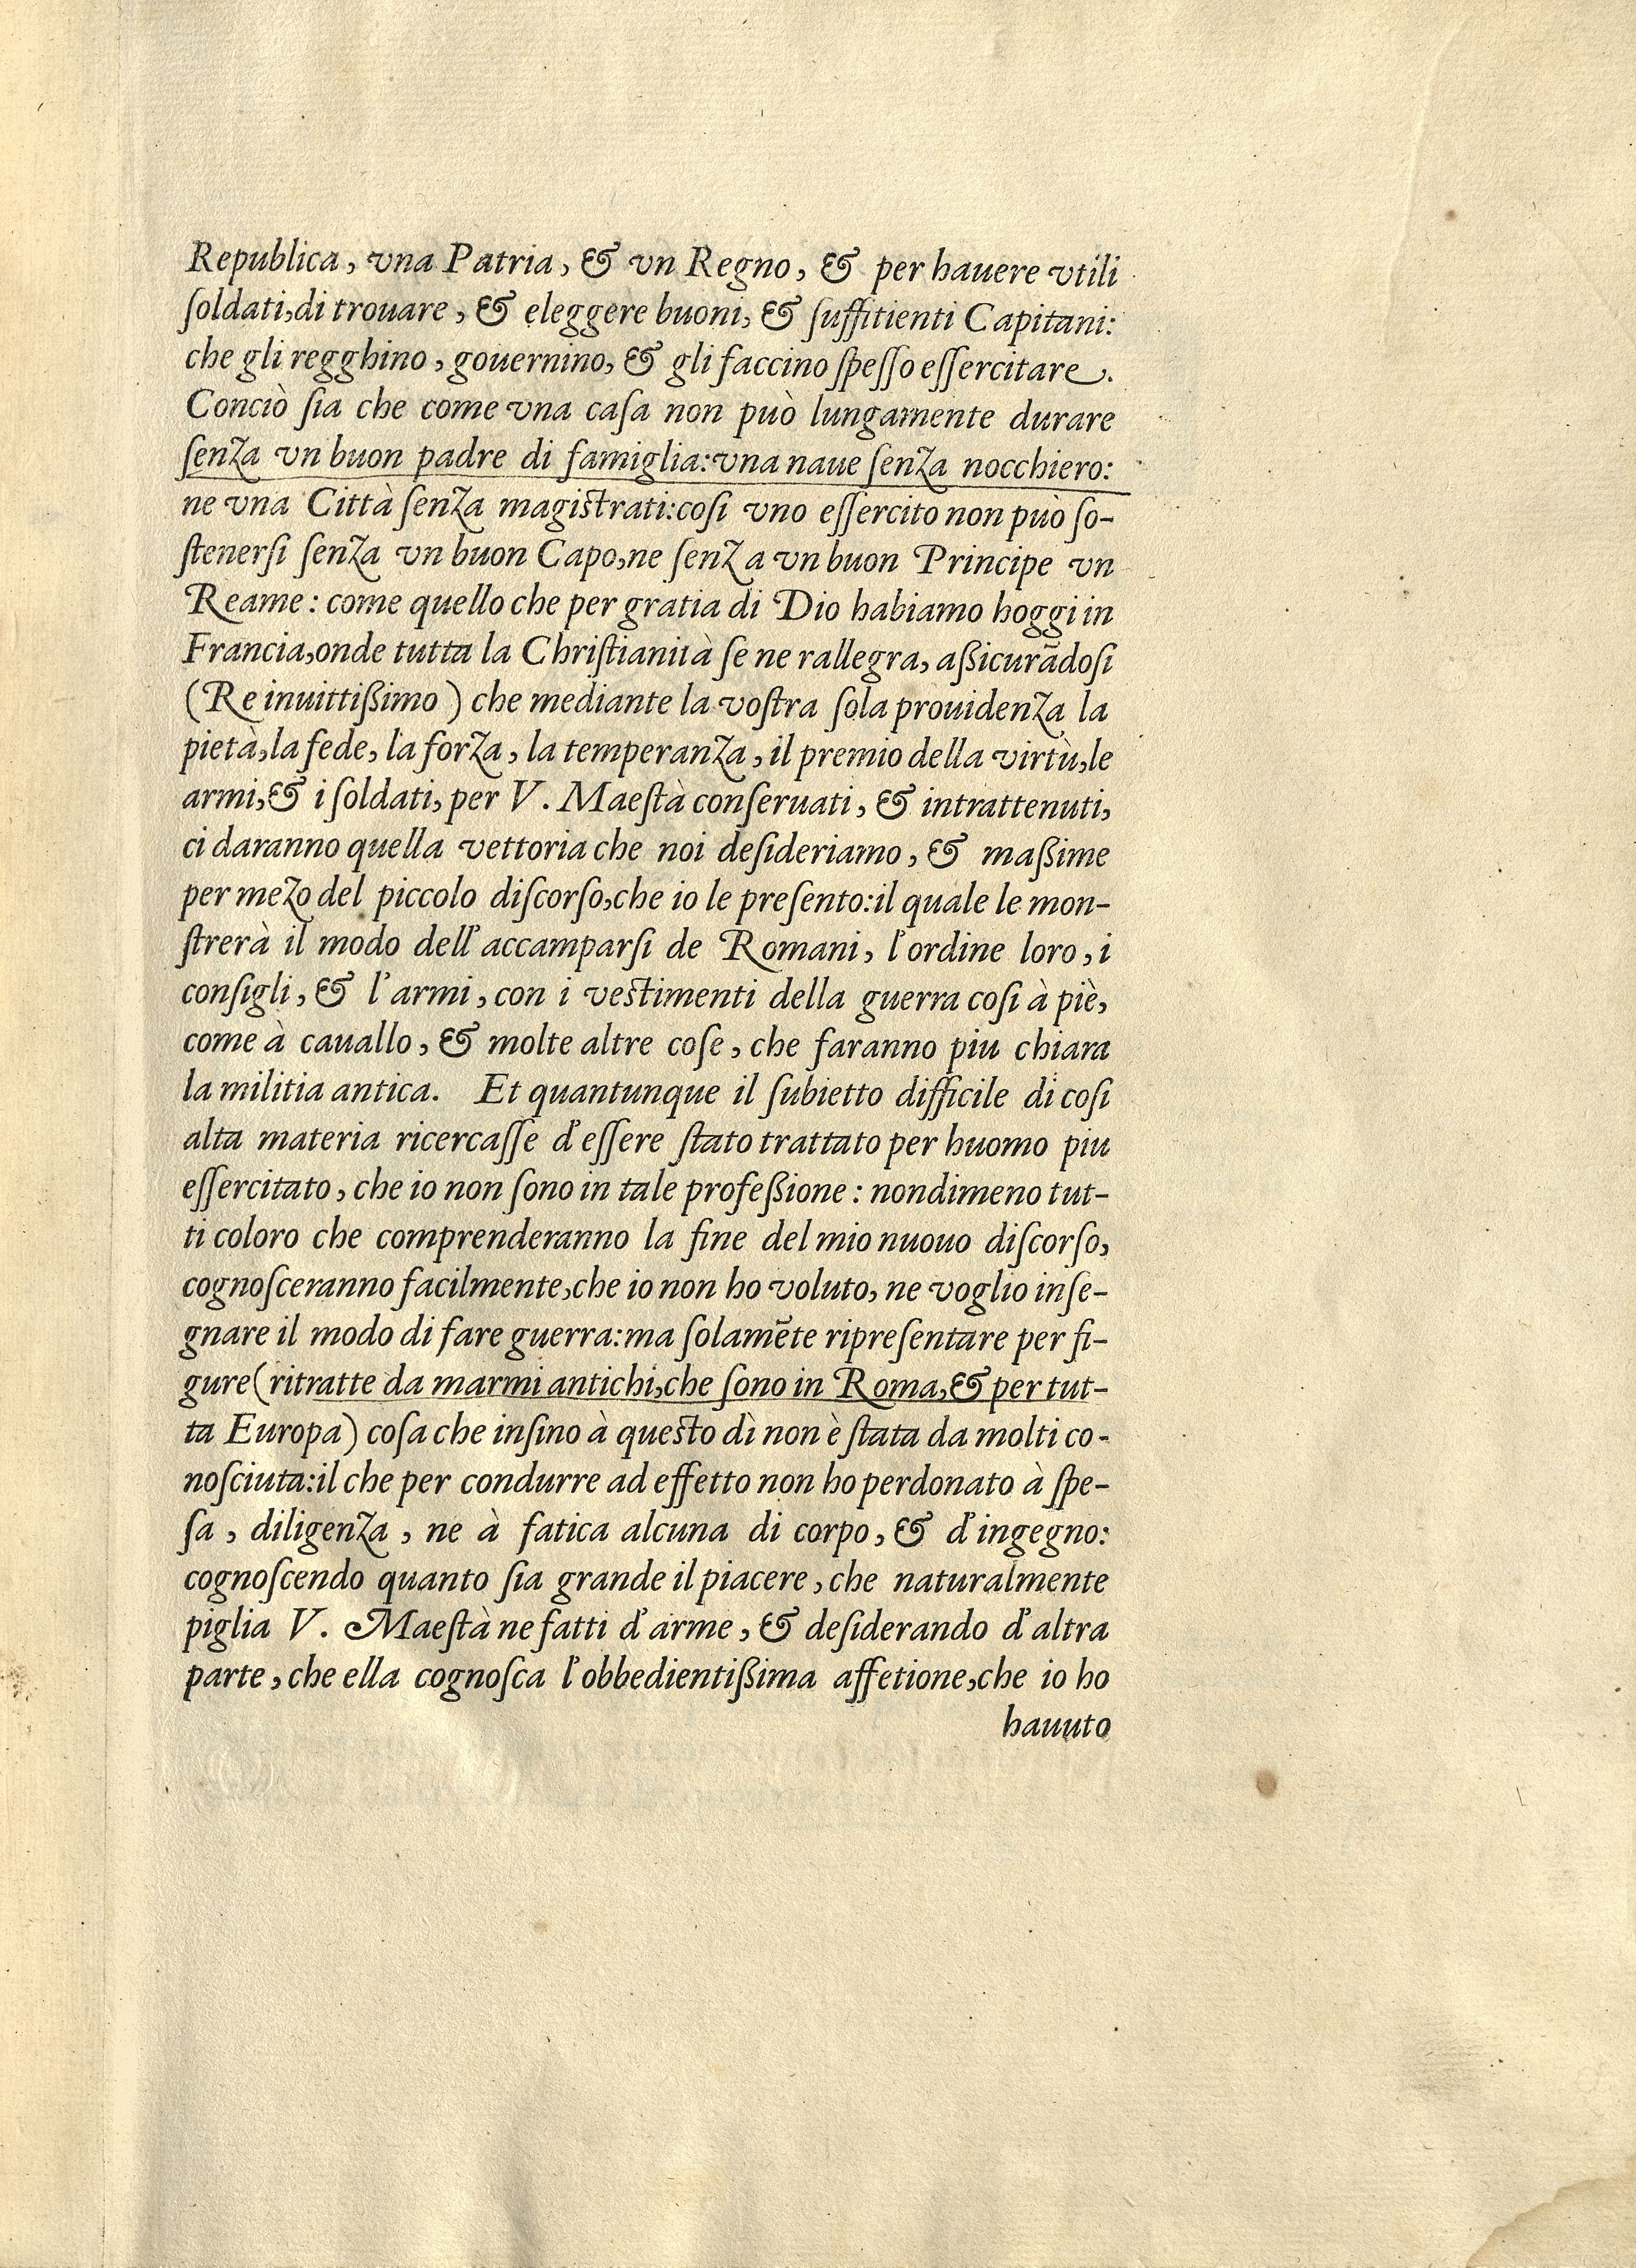 Republica, vna Patria, & vn Regno, & per hauere vtili
ſoldati, di trouare, & eleggere buoni, & ſuffitienti Capitani:
che gli regghino, gouernino, & gli faccino ſpeſſo eſſercitare.
Conciò ſia che come vna caſa non può lungamente durare
ſenza vn buon padre di famiglia: vna naue ſenza nocchiero:
ne vna Città ſenza magiſtrati: coſi vno eſſercito non può ſo-
ſtenerſi ſenza vn buon Capo, ne ſenza vn buon Principe vn
Reame: come quello che per gratia di Dio habiamo hoggi in
Francia, onde tutta la Chriſtianità ſe ne rallegra, aßicurādoſi
(Re inuittißimo) che mediante la voſtra ſola prouidenza la
pietà, la fede, la forza, la temperanza, il premio della virtù, le
armi, & i ſoldati, per V. Maeſtà conſeruati, & intrattenuti,
ci daranno quella vettoria che noi deſideriamo, & maßime
per mezo del piccolo diſcorſo, che io le preſento: il quale le mon-
ſtrerà il modo dell'accamparſi de Romani, l'ordine loro, i
conſigli, & l'armi, con i veſtimenti della guerra coſi à piè,
come à cauallo, & molte altre coſe, che faranno piu chiara
la militia antica. Et quantunque il ſubietto difficile di coſi
alta materia ricercaſſe d'eſſere ſtato trattato per huomo piu
eſſercitato, che io non ſono in tale profeßione: nondimeno tut-
ti coloro che comprenderanno la fine del mio nuouo diſcorſo,
cognoſceranno facilmente, che io non ho voluto, ne voglio inſe-
gnare il modo di fare guerra: ma ſolamēte ripreſentare per fi-
gure (ritratte da marmi antichi, che ſono in Roma, & per tut-
ta Europa) coſa che inſino à queſto dì non è ſtata da molti co-
noſciuta: il che per condurre ad effetto non ho perdonato à ſpe-
ſa, diligenza, ne à fatica alcuna di corpo, & d'ingegno:
cognoſcendo quanto ſia grande il piacere, che naturalmente
piglia V. Maeſtà ne fatti d'arme, & deſiderando d'altra
parte, che ella cognoſca l'obbedientißima affetione, che io ho
hauuto